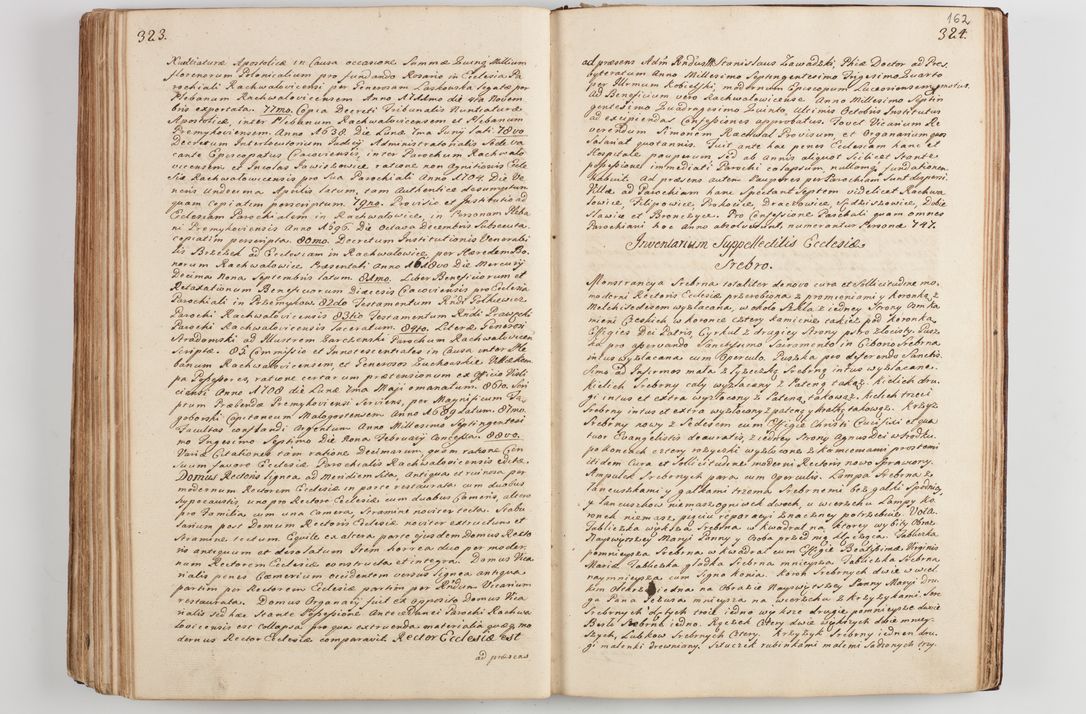 323.
Nuntiaturæ Apostolicæ in Causa occasione Summæ Quinq Millium
florenorum Polonicalium pro fundando Rosario in Ecclesia Pa
rochiali Rachwalovicensi per Generosam Laskowska legatæ per
Plebanum Rachwalovicensem Anno
bris exportata. 77mo. Copia Decreti Tribunalis Nuntiaturæ
Apostolicæ, inter Plebanum Rachwalovicensem et Plebanum
Premykoviensem Anno 1638 die Lunæ 7ma Junij lati. 78vo.
Decretum Interlocutorium Judicij Administratorialis Sede va
cante Episcopatus Cracoviensis, inter Parochum Rachwalo
vicensem et Nicolas Pawlikowicz ratione non agnitionis Eccle
siæ Rachwalovicensis pro Sua Parochiali Anno 1704. Die Ve
neris Undecima Aprilis latum, tam authentice desumptum
quam copiatim perscriptum. 79no. Provisio et Institutio ad
Ecclesiam Parochialem in Rachwalowice, in Personam Pleba
ni Premykoviensis Anno 1696. Die Octava Decembris Subsecuta
copiatim perscripta. 80mo. Decretum Institutionis Venerabi
lis Brzezek ad Ecclesiam in Rachwalowice, per Hæredem Bo
norum Rachwalowice Præsentati Anno 1680vo Die Mercurij
Decima Nona Septembris latum. 81mo. Liber Beneficiorum et
Retaxationum Beneficiorum Diæcesis Cracoviensis pro Ecclesia
Parochiali in Przemykow. 82do Testamentum Rndi Golkiewicz
Parochi Rachwalovicensis 83tio Testamentum Rndi Przewocki
Parochi Rachwalovicensis laceratum. 84to. Literæ Generosi
Stradomski ad Illustrem Barczenski Parochum Rachwalovicen
Scriptæ. 85. Commissio et Innotescentiales in Causa inter Ple
banum Rachwalovicensem, et Generosos Zuchowskie Villæ
pa Possessores, ratione certarum prætensionum ex Officio Visli
ciensi Anno 1708 die Lunæ 7ma Maji emanatum. 86to. Scri
ptum Præbendæ Premykoviensi Serviens, per Magnificum Ja
goborski Capitaneum Malogostensem Anno 1689 datum. 87mo.
Facultas conflandi Argentum Anno Millesimo Septingentesi
mo Trigesimo Septimo Die Nona February Concessa. 88vo.
Variæ Citationes tam ratione Decimarum, quam ratione Cen
suum favore Ecclesiæ Parochialis Rachwalovicensis editæ.
Domus Rectoris lignea ad Meridiem Sita, antiqua et ruinosa per
modernum Rectorem Ecclesiæ in parte restaurata cum duabus
Hypocaustis, uno pro Rectore Ecclesiæ cum duabus Cameris, altero
pro Familia cum una Camera, Stramine noviter tecta. Stabu
lanum post Domum Rectoris Ecclesiæ noviter extructum et
Stramine tectum. Equile ex altera parte ejusdem Domus Recto
ris antiquum et desolatum. Item horrea duo per moder
num Rectorem Ecclesiæ constructa et integra. Domus Vica
rialis penes Cæmeterium occidentem versus lignea antiqua
partim per Rectorem Ecclesiæ partim per Rndum Vicarium
restaurata. Domus Organarij fuit ex opposito Domus Vica
rialis Sed per Stantæ Possessione Antecedanei Parochi Rachwa
lovicensis est Collapsa, pro qua extruenda materialia quæq mo
dernus Rector Ecclesiæ comparavit. Rector Ecclesiæ est
ad præsens
162
324.
ad præsens Adm Rndus D Stanislaus Zawadzki, Phiæ Doctor ad Pres
byteratum Anno Millesimo Septingentesimo Trigesimo Quarto
per Illrmum Kobielski, modernum Episcopum Luceoriensem promotus.
Ad Beneficium vero Rachwalowicense Anno Millesimo Septin
gentesimo Quadragesimo Quinto Ultimis Octobris Institutus
ad excipiendas Confessiones approbatus. Fovet Vicarium Re
verendum Simonem Rachwal Provisum, et Organarium quos
Salariat quotannis. Fuit ante hac penes Ecclesiam hanc et
Hospitale pauperum Sed ab annis aliquot Scilicet Stante
possessione immediati Parochi colapsum, nullamq fundationem
habuit. Ad præsens autem Pauperes per Parochiam Sunt dispersi.
Villæ ad Parochiam hanc Spectant Septem videlicet Rachwa
lowice, Filipowice, Piotrkowice, Dracżowice, Sędziszowice, Dobie
Slawice et Bronczyce. Pro Confessione Paschali quam omnes
Parochiani hoc Anno absolverunt, numerantur Personæ 747.
Inventarium Suppellectilis Ecclesiæ
Srebro.
Monstrancya Srebrna totaliter de novo cura et Sollicitudine mo
moderni Rectoris Ecclesiæ przerobiona z promieniami y koronką, z
Melchisedesem wyzlacana, w okolo Szkla z iedney Strony Om. ka
mieni Czeskich w koronce cztery kamienie takież pod koronką
Effigies Dei Patris, Cyrkul z drugiey Strony potrozlocisty. Pusz
ka pro asservando Sanctissimo Sacramento in Ciborio Srebrna
intus wyzlacana cum Operculo. Puszka pro deferendo Sanctis
simo ad Infirmos mala z Łyżeczką Srebrną intus wyzlacane.
Kielich Srebrny caly wyzlacany z Pateną takąż. Kielich dru
gi intus et extra wyzlacany z Pateną takową. Kielich trzeci
Srebrny intus et extra wyzlacany z pateną y kratką takowąż. Krzyż
Srebrny nowy z Sedesem cum Effigie Christi Crucifixi et qua
tuor Evangelistis deauratis, z iedney Strony Agnus Dei w srodku
po koncach cztery rozyczki wyzlacane z kamieniami prostemi
itidem Cura et Sollicitudine moderni Rectoris nowo Sprawiony.
Ampulek Srebrnych para cum Operculis. Lampa Srebrna z
lancuszkami y galkami trzema Srebrnemi bez galki Spodniey,
y lancuszkow niemasz ognuwch dwoch, u wierzchu Lampy ko
ronek niemasz pięciu reparacyi znaczney potrzebuie. Vota.
Tabliczka wyksza Srebrna w kwadrat na ktorey wybity Obraz
Nayswiętszey Maryi Panny y Osoba przed nią klęcząca. Tabliczka
pomnieysza Srebrna w kwadrat cum Effigie Beatissimæ Virginis
Mariæ. Tabliczka gladka Srebrna mnieysza. Tabliczka Srebrna
naymnieysza cum Signo konia. Koron Srebrnych dwie w wiel
kim Oltarzu iedna na Obrazie Nayswiętszey Panny Maryi dru
ga Pana Jezusa mnieysza na wierzchu z krzyżykami. Serc
Srebrnych dętych troie iedno wyksze drugie pomnieysze dwoie
Berło Srebrne iedno. Rączek Cztery dwie większych dwie mniey
szych, Lubkow Srebrnych Cztery. Krzyżyk Srebrny ieden dru
gi malenki drewniany. Sztuczek rubinkami malemi Sadzonych trzy.